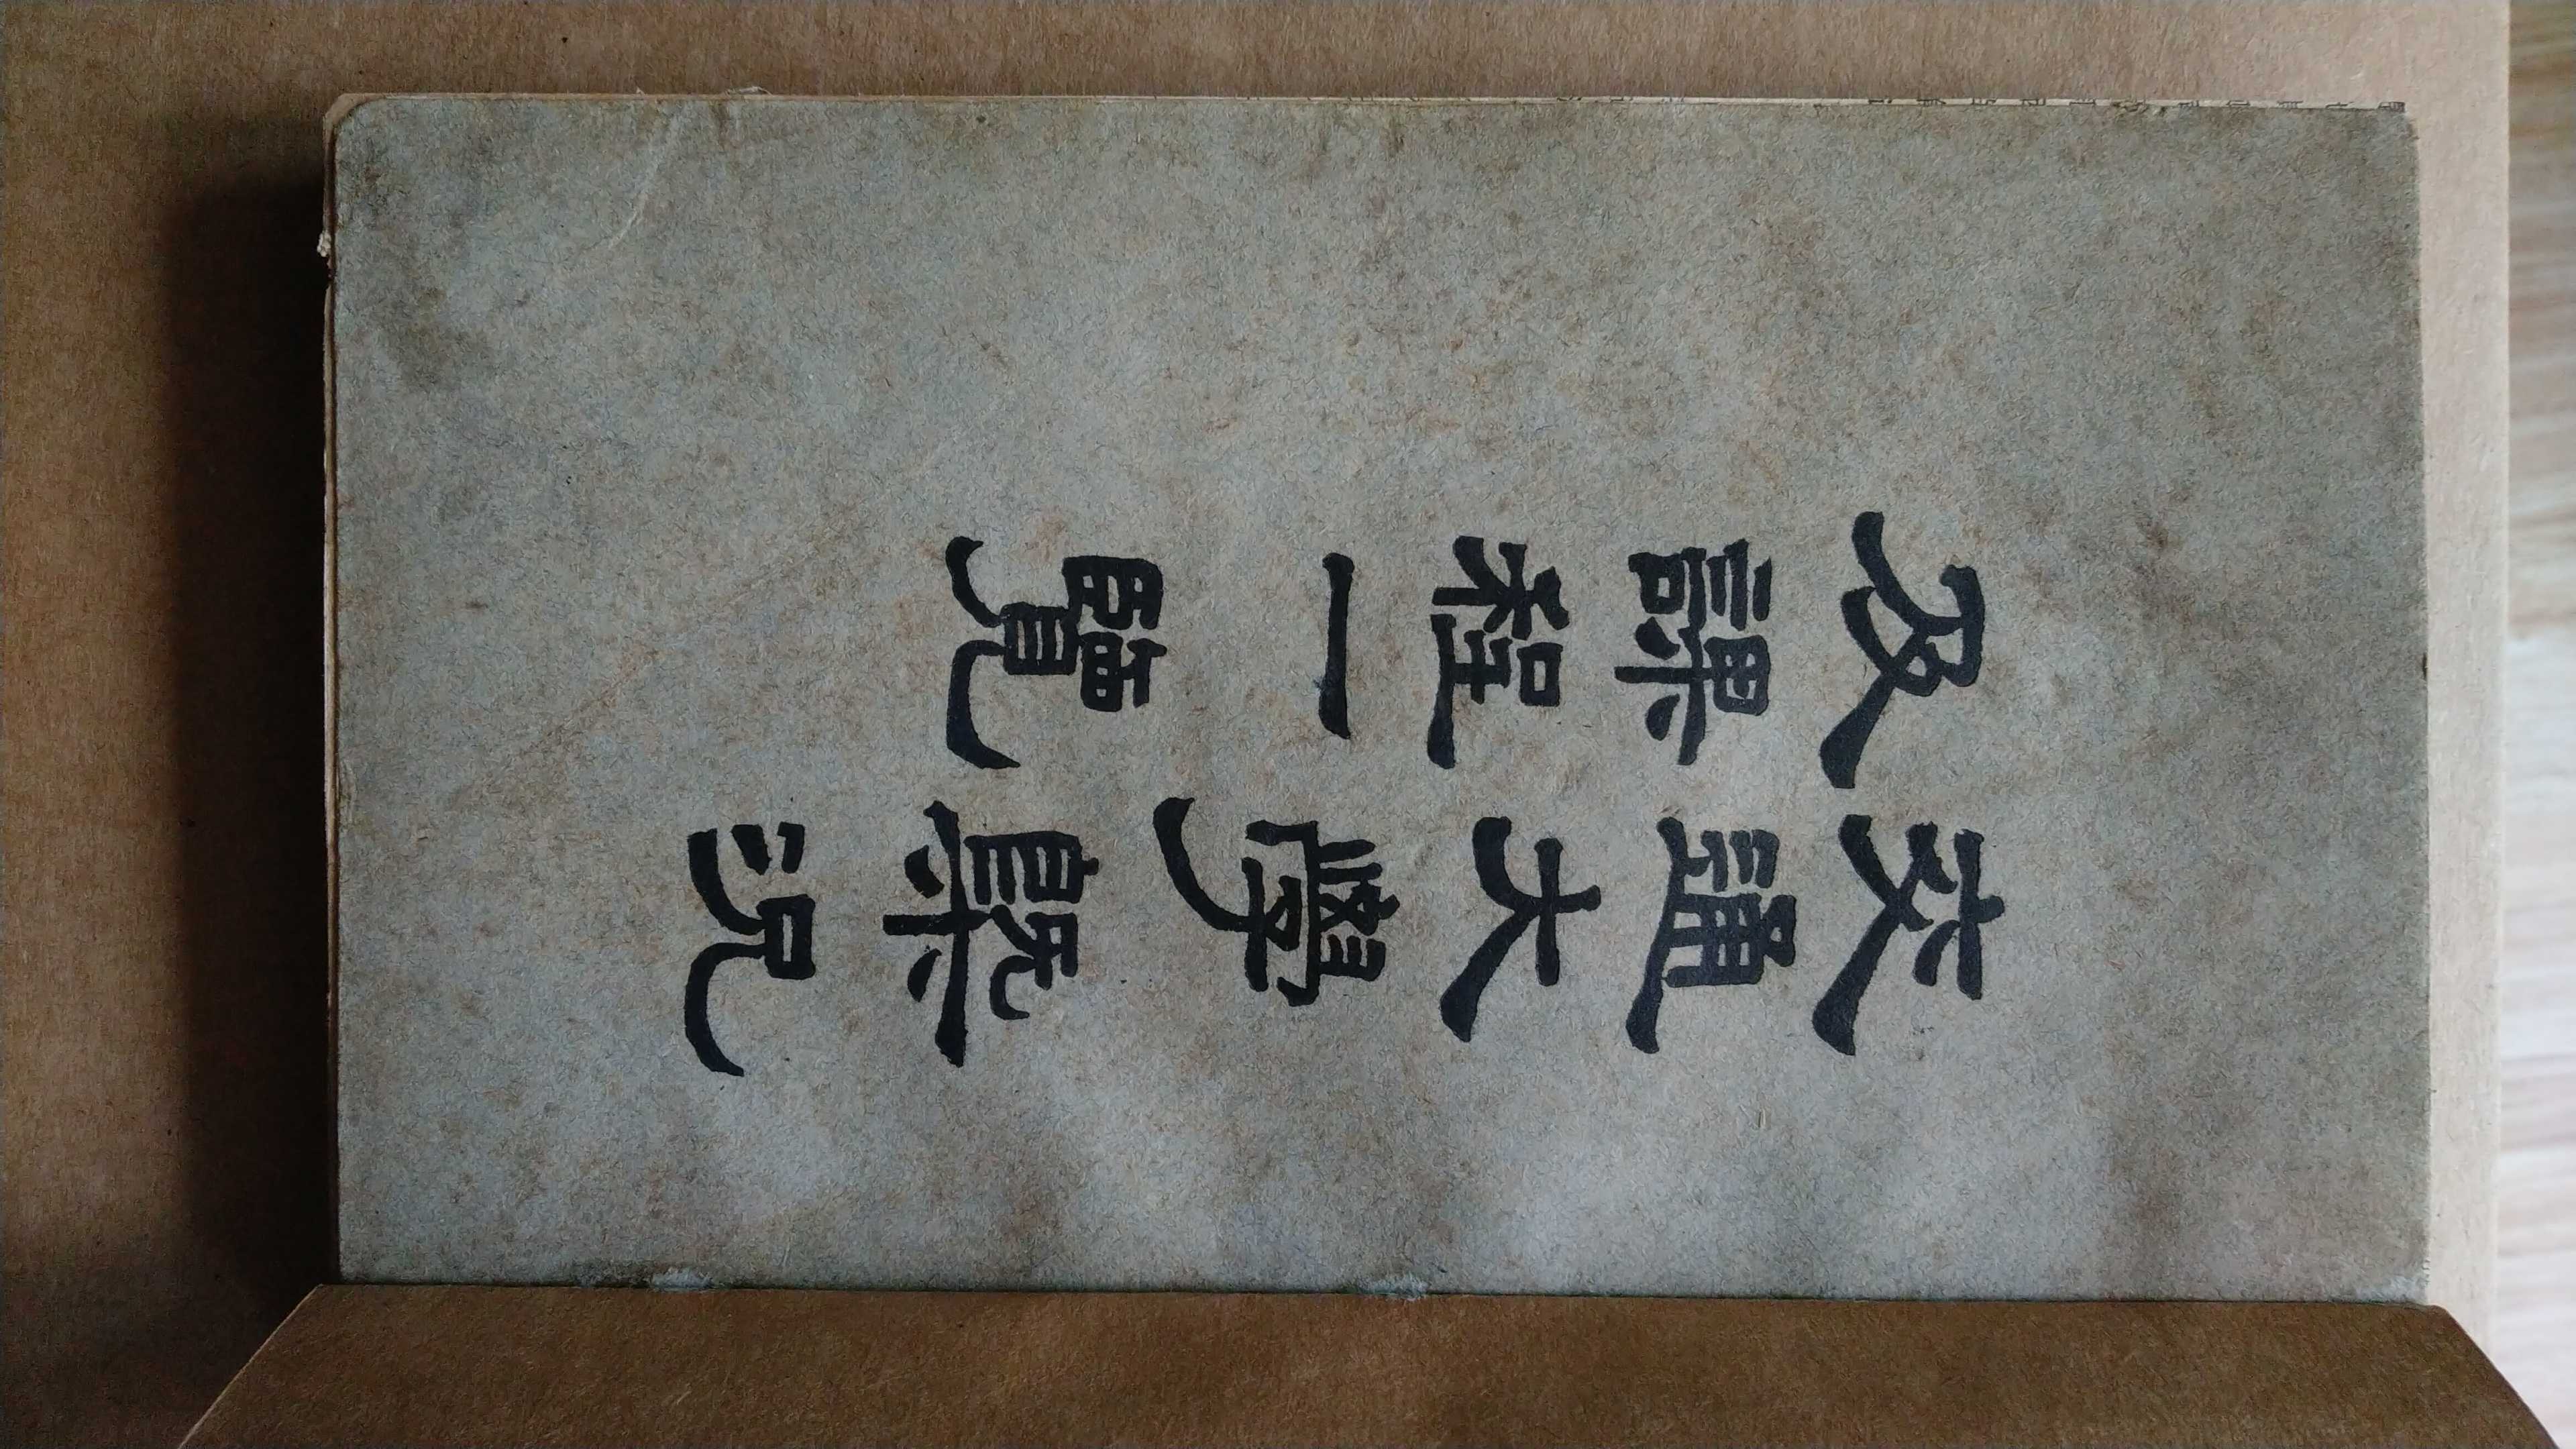 交通大學槩況
及課程一覽